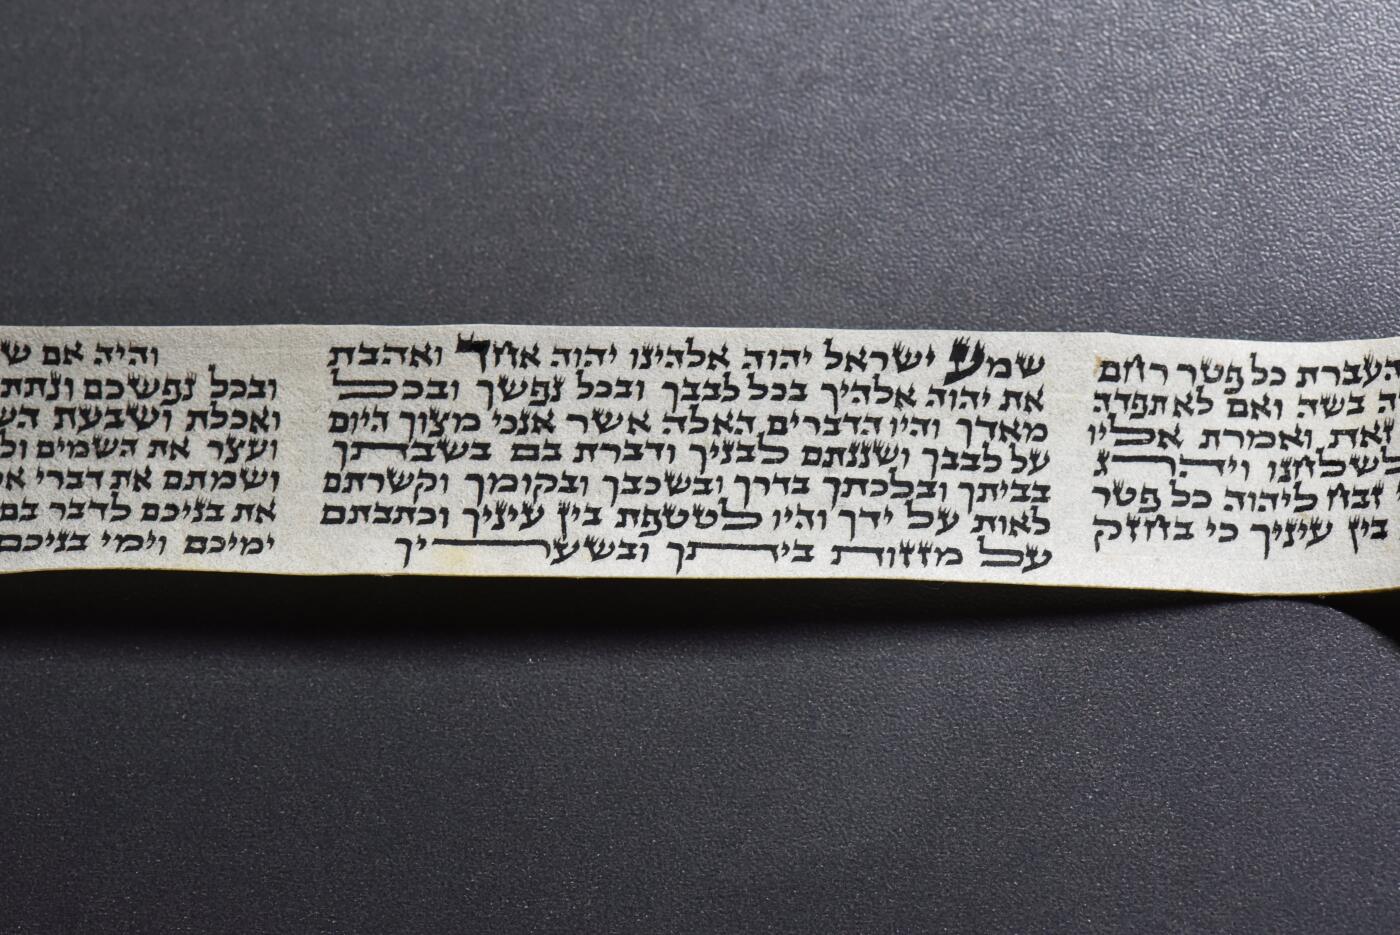 העברת כל פטר רחם
ה בשה ואם לא תפדה
זאת ואמרת אליו
לשלחנו ויהרג
זבח ליהוה כל פטר
בין עיניך כי בחזק
שמע ישראל יהוה אלהינו יהוה אחד ואהבת
את יהוה אלהיך בכל לבבך ובכל נפשך ובכל
מאדך והיו הדברים האלה אשר אנכי מצוך היום
על לבבך ושננתם לבניך ודברת בם בשבתך
בביתך ובלכתך בדרך ובשכבך ובקומך וקשרתם
לאות על ידך והיו לטטפת בין עיניך וכתבתם
על מזזות ביתך ובשעריך
והיה אם ש
ובכל נפשכם ונתת
ואכלת ושבעת הש
ועצר את השמים ול
ושמתם את דברי א
את בניכם לדבר בם
ימיכם וימי בניכם